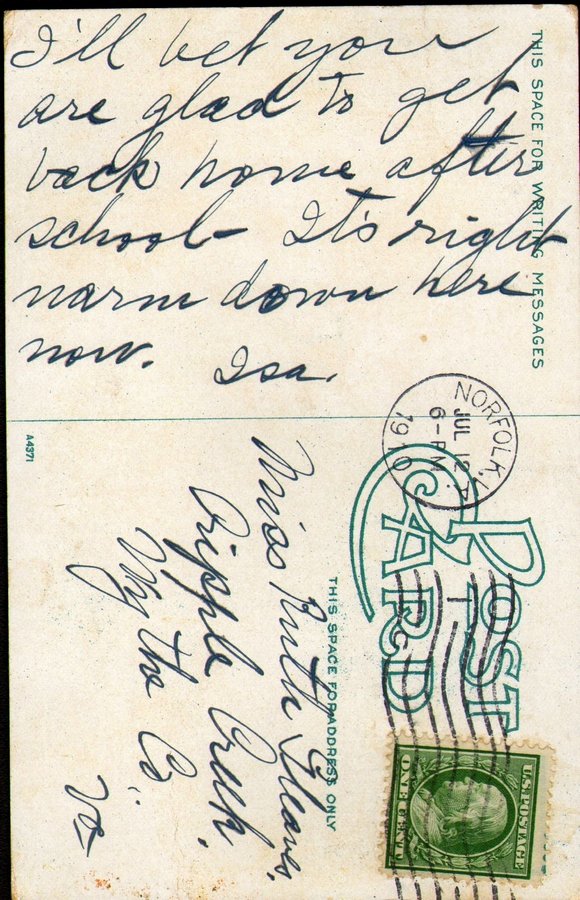 I'll bet you
are glad to get
back home after
school – It's right
warm down here
now. Isa.
THIS SPACE FOR WRITING MESSAGES
A4371
POST
CARD
NORFOLK, VA
JUL 12
6-PM
1910
THIS SPACE FOR ADDRESS ONLY
Miss Ruth
Cripple Creek.
Wythe Co.
Va
U.S. POSTAGE
ONE CENT